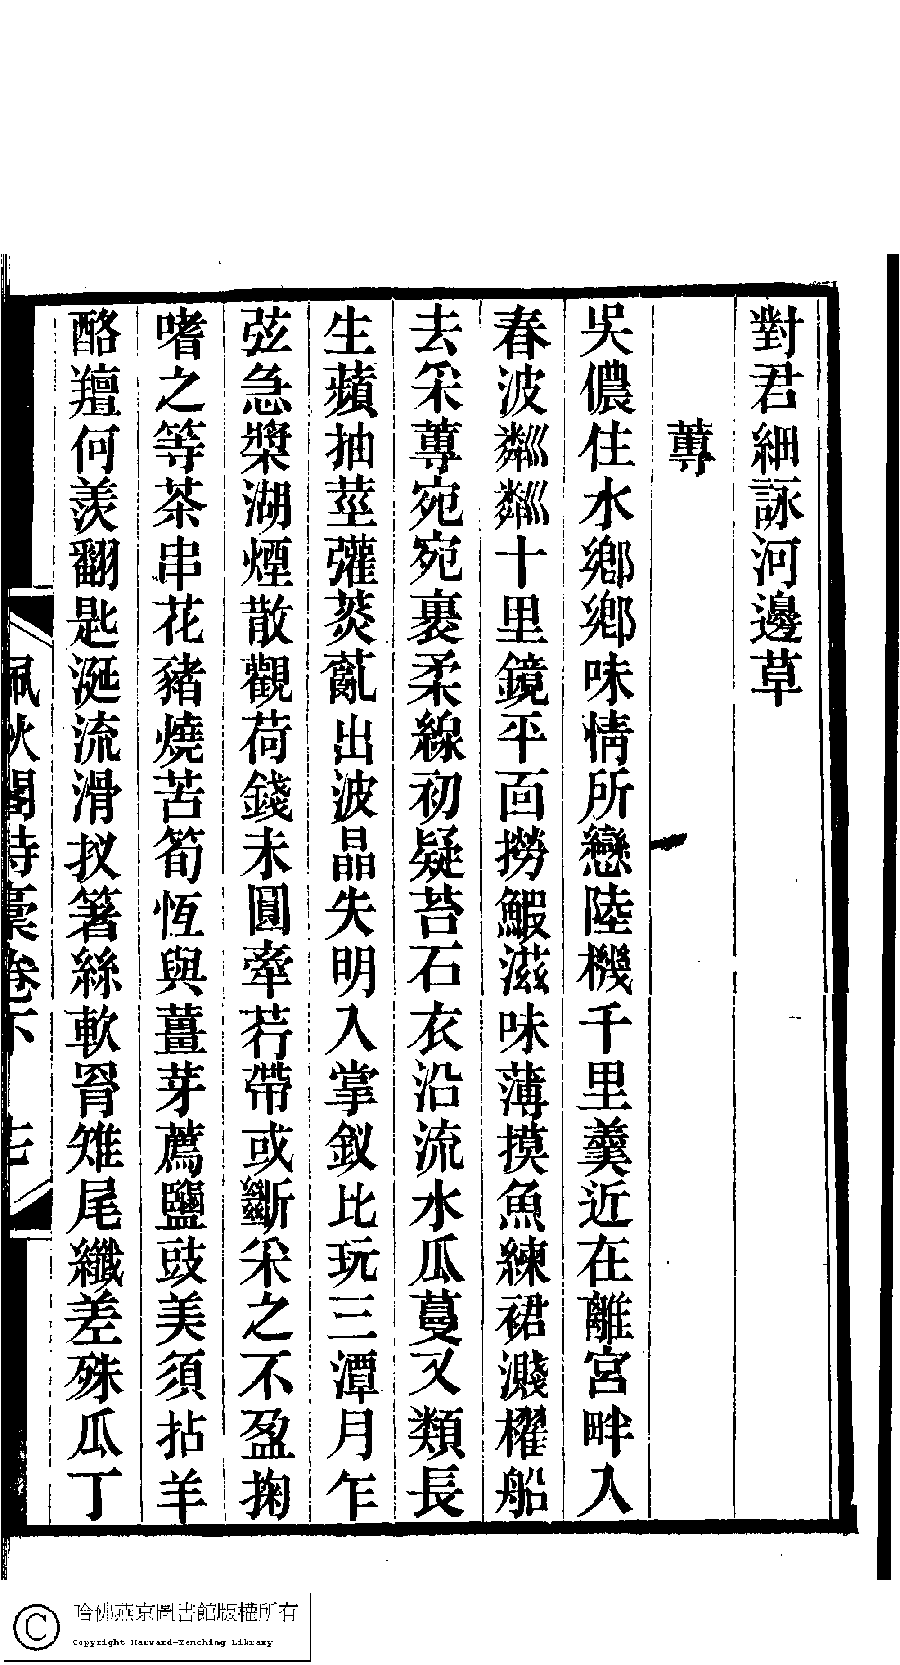 對君細詠河邊草
蓴
吳儂住水鄉鄉味情所戀陸機千里羹近在離宮畔入
春波粼粼十里鏡平面撈鰕滋味薄摸魚練裙濺櫂船
去采蓴宛宛裹柔線初疑苔石衣沿流水瓜蔓又類長
生蘋抽莖虇菼薍出波晶失明入掌釵比玩三潭月乍
弦急槳湖煙散觀荷錢未圓牽荇帶或斷采之不盈掬
嗜之等茶串花豬燒苦筍恆與薑芽薦鹽豉美須拈羊
酪羶何羨翻匙涎流滑扠箸絲軟胥雉尾纖差殊瓜丁
佩秋閣詩稾卷下 七
哈佛燕京圖書館版權所有
Copyright Harvard-Yenching Library